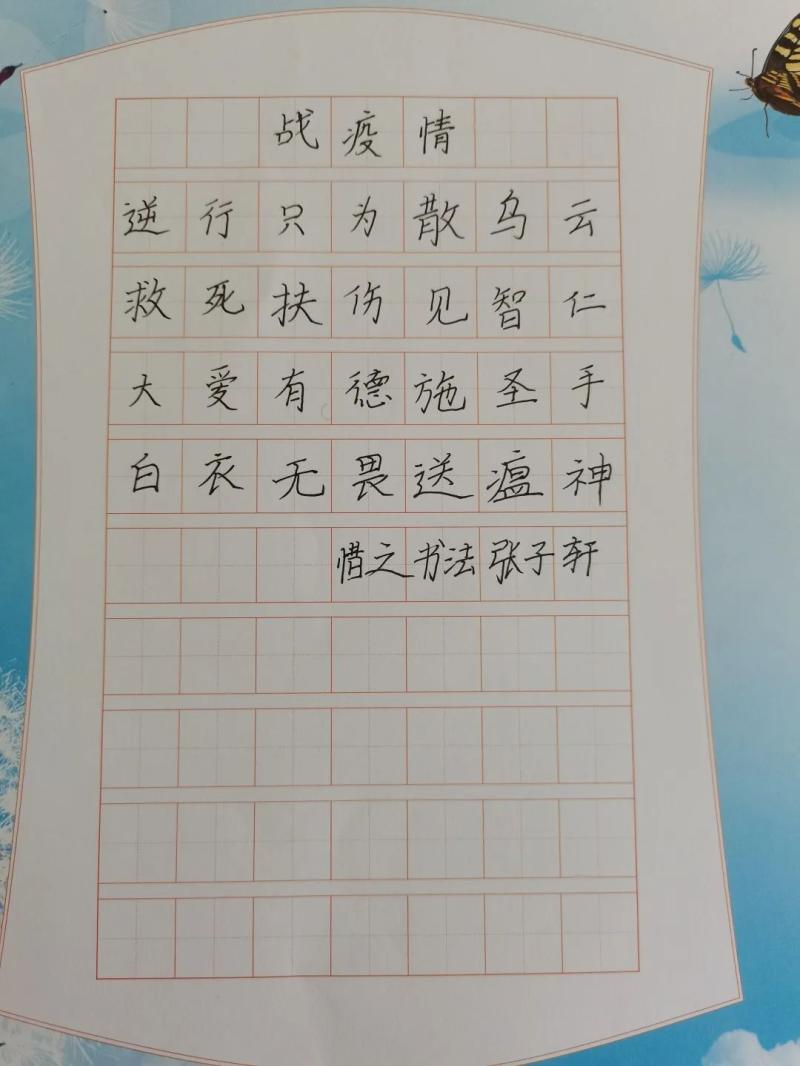 战疫情
逆行只为散乌云
救死扶伤见智仁
大爱有德施圣手
白衣无畏送瘟神
惜之书法张子轩